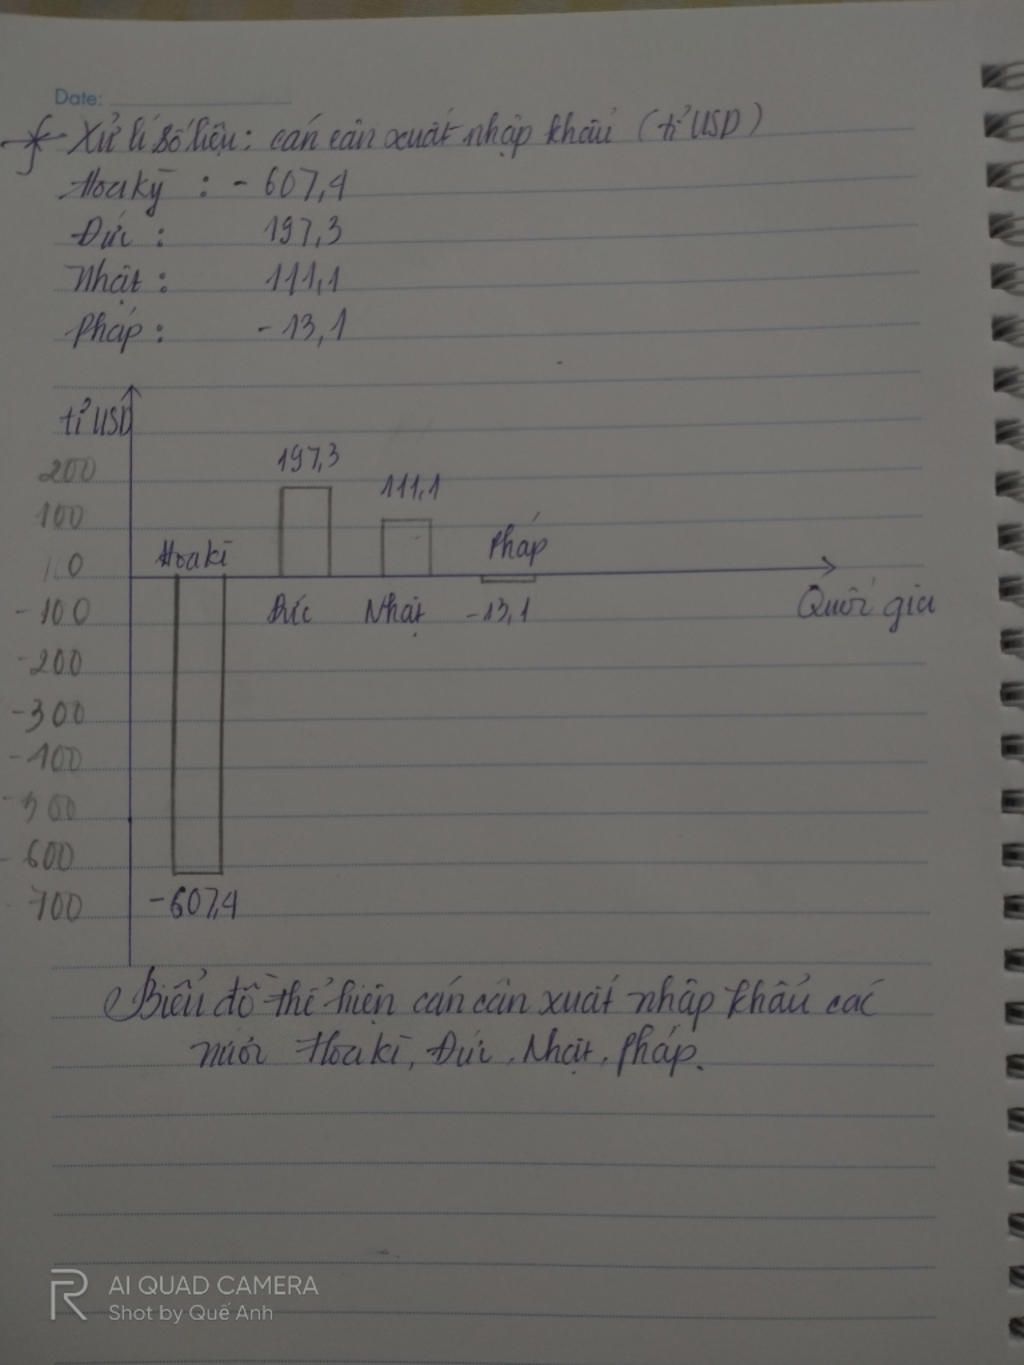 Date:
* Xử lí số liệu: cán cân xuất nhập khẩu (tỉ USD)
Hoa kỳ : - 607,4
Đức : 197,3
Nhật : 111,1
Pháp : - 13,1
tỉ USD
200
100
0
-100
-200
-300
-400
-500
-600
700
197,3
111,1
Hoa kì
Pháp
Đức
Nhật
-13,1
Quốc gia
-607,4
Biểu đồ thể hiện cán cân xuất nhập khẩu các
nước Hoa kì, Đức, Nhật, Pháp.
AI QUAD CAMERA
Shot by Quế Anh